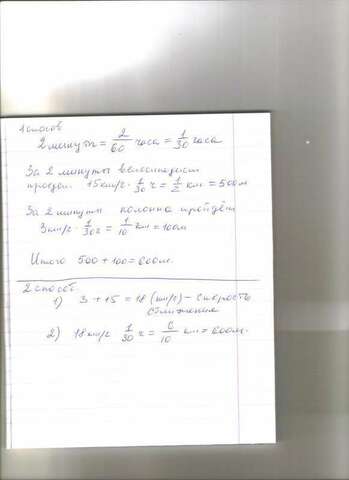 1 способ
2 минуты = 2/60 часа = 1/30 часа
За 2 минуты велосипедист
проедет 15 км/ч · 1/30 ч = 1/2 км = 500 м
За 2 минуты колонна пройдёт
3 км/ч · 1/30 ч = 1/10 км = 100 м
Итого 500 + 100 = 600 м.
2 способ.
1) 3 + 15 = 18 (км/ч) – скорость
сближения
2) 18 км/ч 1/30 ч = 6/10 км = 600 м.